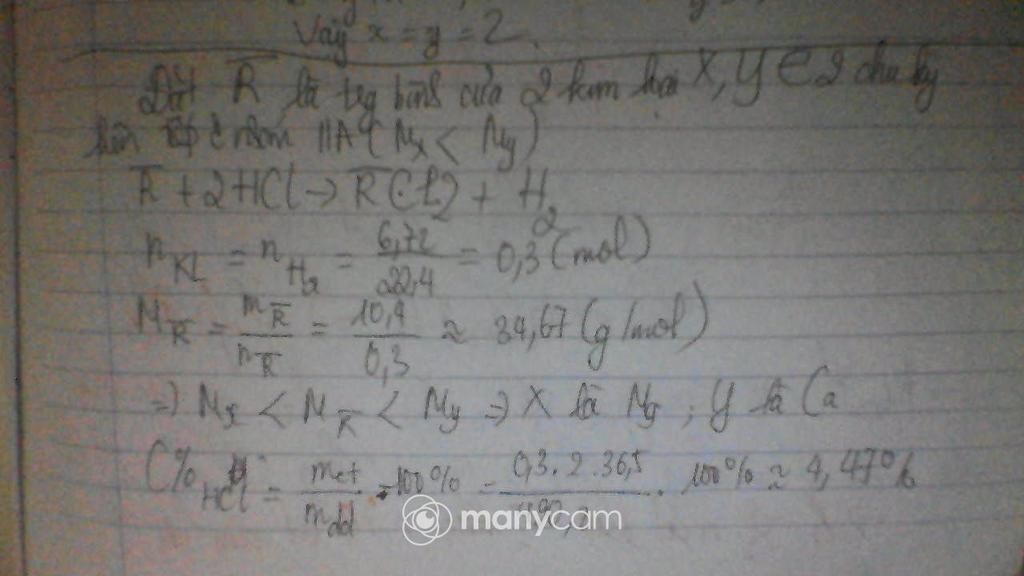 Vậy x = y = 2.
Đặt R̅ là tg bình của 2 kim loại X, Y ∈ 2 chu kỳ
liên tiếp nhóm IIA (Mx < My)
R̅ + 2HCl → R̅Cl2 + H2
nKL = nH2 = 6,72/22,4 = 0,3 (mol)
MR̅ = mR̅/nR̅ = 10,4/0,3 ≈ 34,67 (g/mol)
=> Mx < MR̅ < My => X là Mg ; Y là Ca
C%HCl = mct/mdd . 100% = 0,3.2.36,5 . 100% ≈ 4,47%
manycam